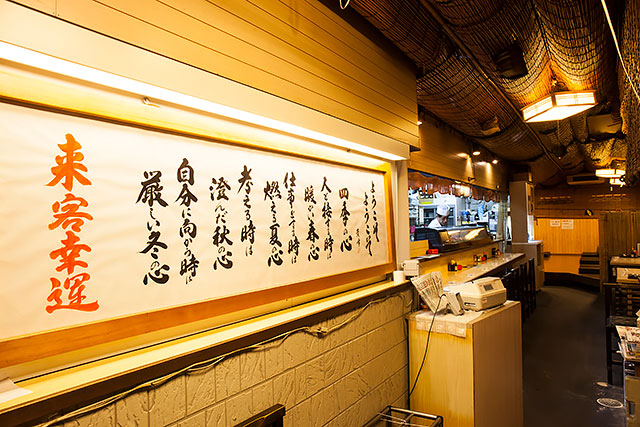 ようこそ
ようこそ
四季の心
人と接する時は
暖い春の心
仕事をする時は
燃える夏の心
考える時は
澄んだ秋の心
自分に向かう時は
厳しい冬の心
来客幸運